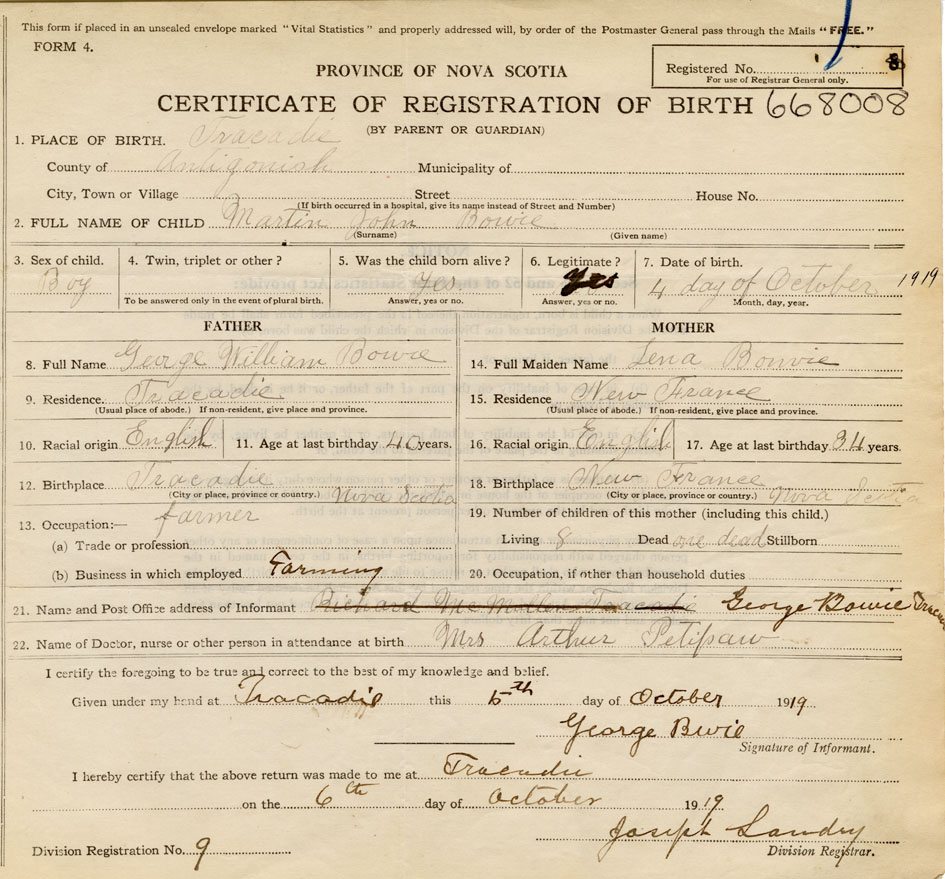 This form if placed in an unsealed envelope marked "Vital Statistics" and properly addressed will, by order of the Postmaster General pass through the Mails "FREE."
FORM 4.
Registered No. 8
For use of Registrar General only.
PROVINCE OF NOVA SCOTIA
CERTIFICATE OF REGISTRATION OF BIRTH 668008
(BY PARENT OR GUARDIAN)
1. PLACE OF BIRTH. Tracadie
County of Antigonish Municipality of
City, Town or Village Street House No.
(If birth occurred in a hospital, give its name instead of Street and Number)
2. FULL NAME OF CHILD Martin John Bowie
(Surname) (Given name)
3. Sex of child. 4. Twin, triplet or other? 5. Was the child born alive? 6. Legitimate? 7. Date of birth.
Boy Yes Yes 4 day of October 1919
To be answered only in the event of plural birth. Answer, yes or no. Answer, yes or no. Month, day, year.
FATHER MOTHER
8. Full Name George William Bowie 14. Full Maiden Name Lena Bonvie
9. Residence. Tracadie 15. Residence New France
(Usual place of abode.) If non-resident, give place and province. (Usual place of abode.) If non-resident, give place and province.
10. Racial origin English 11. Age at last birthday 40 years. 16. Racial origin English 17. Age at last birthday 34 years.
12. Birthplace Tracadie 18. Birthplace New France
(City or place, province or country.) Nova Scotia (City or place, province or country.) Nova Scotia
13. Occupation:— farmer 19. Number of children of this mother (including this child.)
(a) Trade or profession Living 8 Dead one dead Stillborn
(b) Business in which employed Farming 20. Occupation, if other than household duties
21. Name and Post Office address of Informant Richard Mc Tracadie George Bowie
22. Name of Doctor, nurse or other person in attendance at birth Mrs Arthur Petipaw
I certify the foregoing to be true and correct to the best of my knowledge and belief.
Given under my hand at Tracadie this 5th day of October 1919
George Bwie
Signature of Informant.
I hereby certify that the above return was made to me at Tracadie
on the 6th day of October 1919
Joseph Landry
Division Registration No. 9 Division Registrar.